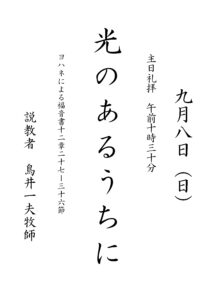 九月八日（日）
主日礼拝　午前十時三十分
光のあるうちに
ヨハネによる福音書十二章二十七ー三十六節
説教者　鳥井一夫牧師